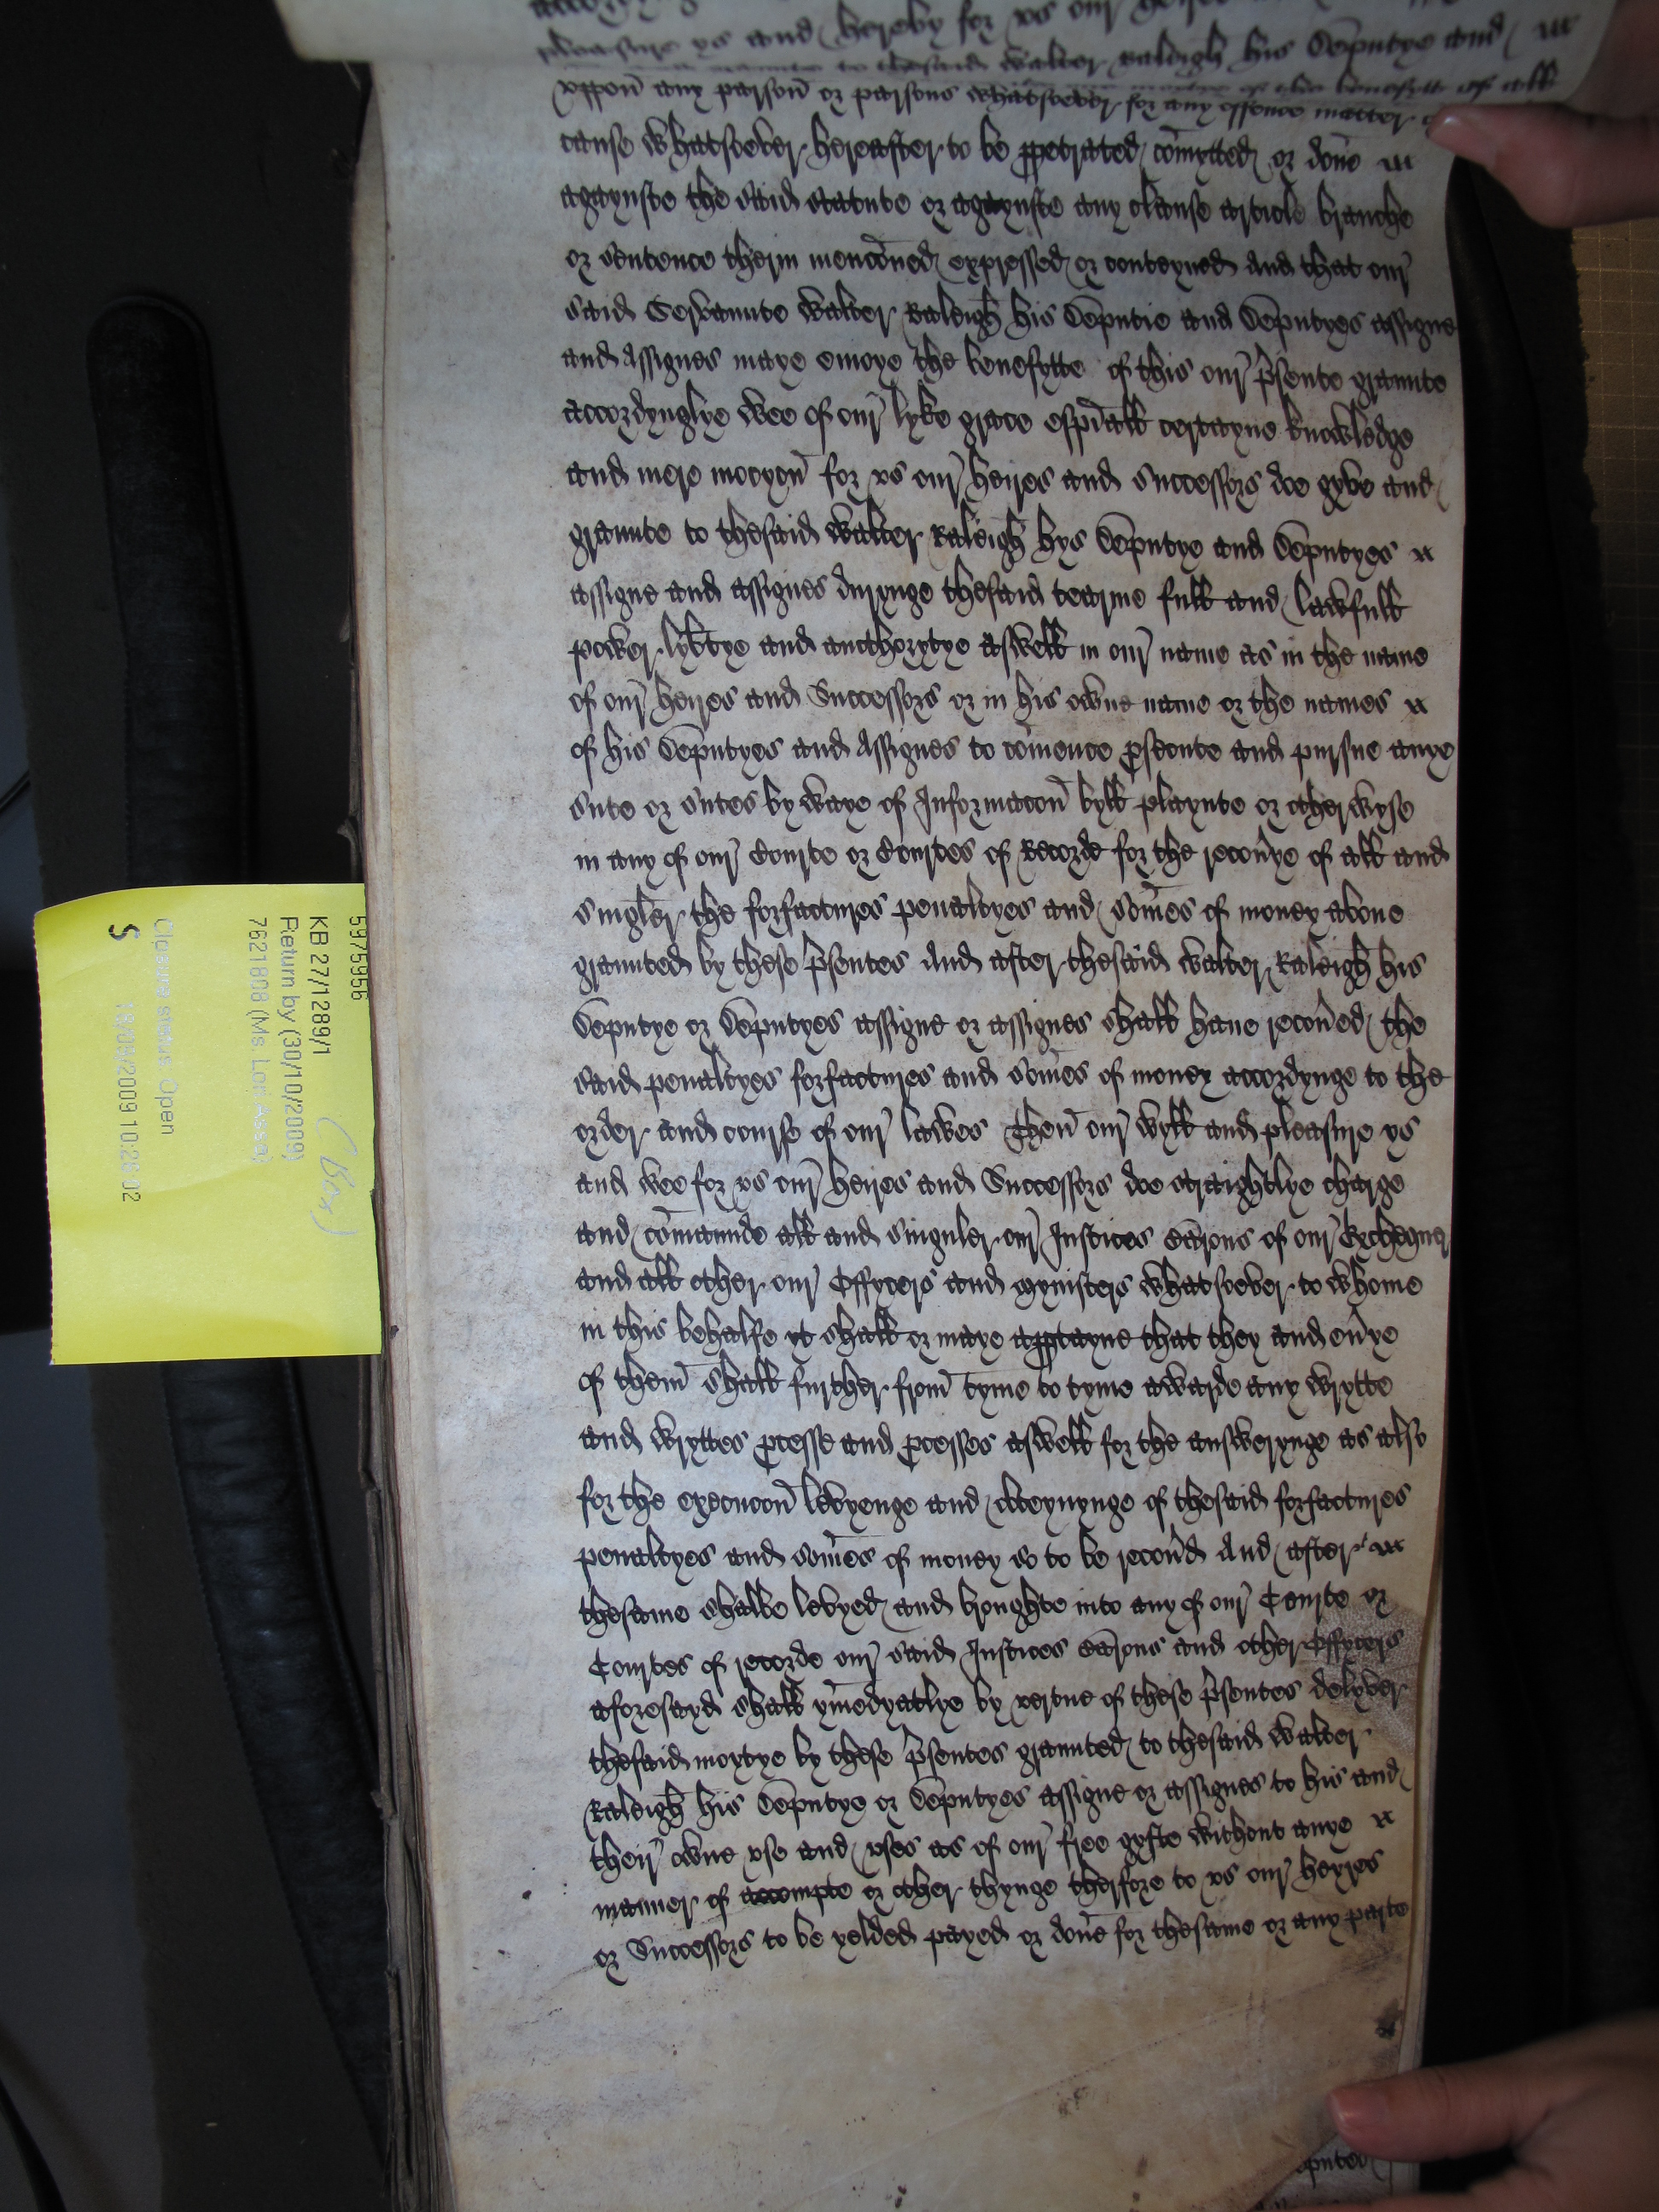 pleasure ys and hereby for vs our heires
to thesaid Walter Raleigh his Deputye and
vppon any parson or parsons whatsoever for any offence matter
cause whatsoever hereafter to be ppetrated comytted or done
agaynste the said statute or agaynste any clause article branche
or sentence therin mencõned expressed or conteyned And that our
said Servaunte Walter Raleigh his Deputie and Deputyes assigne
and Assignes maye enioye the benefytte of this our p̃sente graunte
accordynglye wee of our lyke grace esp̃iall certayne knowledge
and mere mocyon for vs our heires and Successors doe gyve and
graunte to thesaid Walter Raleigh hys Deputye and Deputyes
assigne and assignes durynge thesaid tearme full and lawfull
power lyb̃tye and aucthorytye aswell in our name as in the name
of our heires and Successors or in his owne name or the names
of his Deputyes and Assignes to com̃ence p̱secute and pursue anye
sute or sutes by waye of Informacõn byll playnte or otherwyse
in any of our Courte or Courtes of Recorde for the recou̾ye of all and
singler the forfactures penaltyes and som̃es of money aboue
graunted by these p̃sentes And after thesaid Walter Raleigh his
Deputye or Deputyes assigne or assignes shall haue recou̾ed the
said penaltyes forfactures and som̃es of money accordynge to the
order and course of our lawes Then our wyll and pleasure ys
and wee for vs our heires and Successors doe straightlye charge
and com̃aunde all and singuler our Justices Barons of our Exchequer
and all other our Offycers and mynisters whatsoever to whome
in this behalfe yt shall or maye apptayne that they and eu̾ye
of them shall further from tyme to tyme awarde any wrytte
and wryttes p̱cesse and p̱cesses aswell for the answerynge as also
for the execucõn levyenge and atteynynge of thesaid forfactures
penaltyes and som̃es of money so to be recou̾d And after
thesame shalbe levyed and broughte into any of our Courte or
Courtes of recorde our said Justices Barons and other Offycers
aforesayd shall ym̃edyatlye by vertue of these p̃sentes delyver
thesaid moytye by these p̃sentes graunted to thesaid Walter
Raleigh his Deputye or Deputyes assigne or assignes to his and
their owne vse and vses as of our free gyfte without anye
manner of accompte or other thynge therfore to vs our heyres
or Successors to be yelded payed or done for thesame or any parte
5975956
KB 27/1289/1
Return by (30/10/2009)
Closure status: Open
S